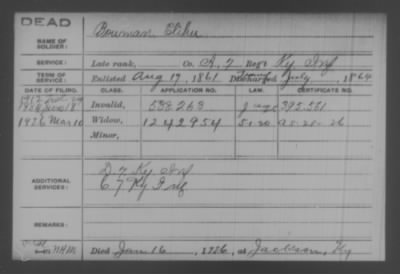 DEAD
NAME OF SOLDIER: Bowman, Elihu
SERVICE: Late rank, Co. A, 7 Reg't Ky Inf
TERM OF SERVICE: Enlisted Aug 17, 1861 Discharged July, 1864
DATE OF FILING. CLASS. APPLICATION NO. LAW. CERTIFICATE NO.
Invalid, 538263 395.
1926 Mar 10 Widow, 1242954
Minor,
ADDITIONAL SERVICES: D. 7 Ky Inf
C. 7 Ky Inf
REMARKS:
Died Jan 16, 1926, at Jackson, Ky